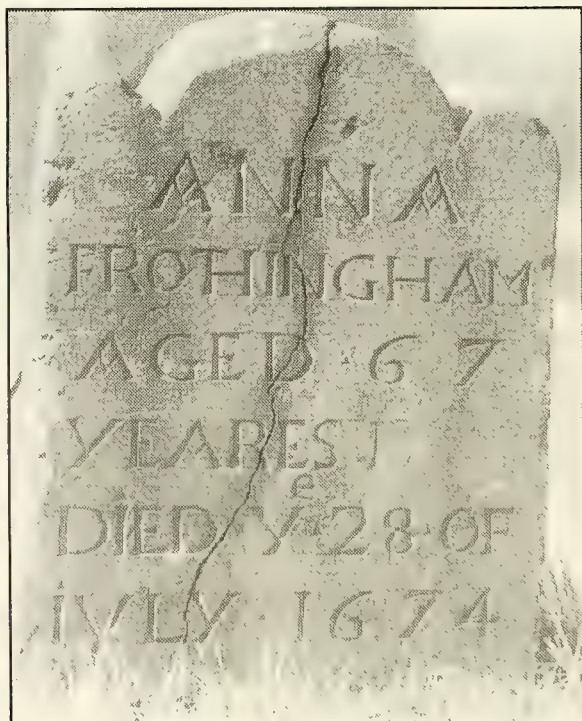 ANNA
FROTHINGHAM
AGED 67
YEARES
DIED Yᵉ 28 OF
IVLY 1674